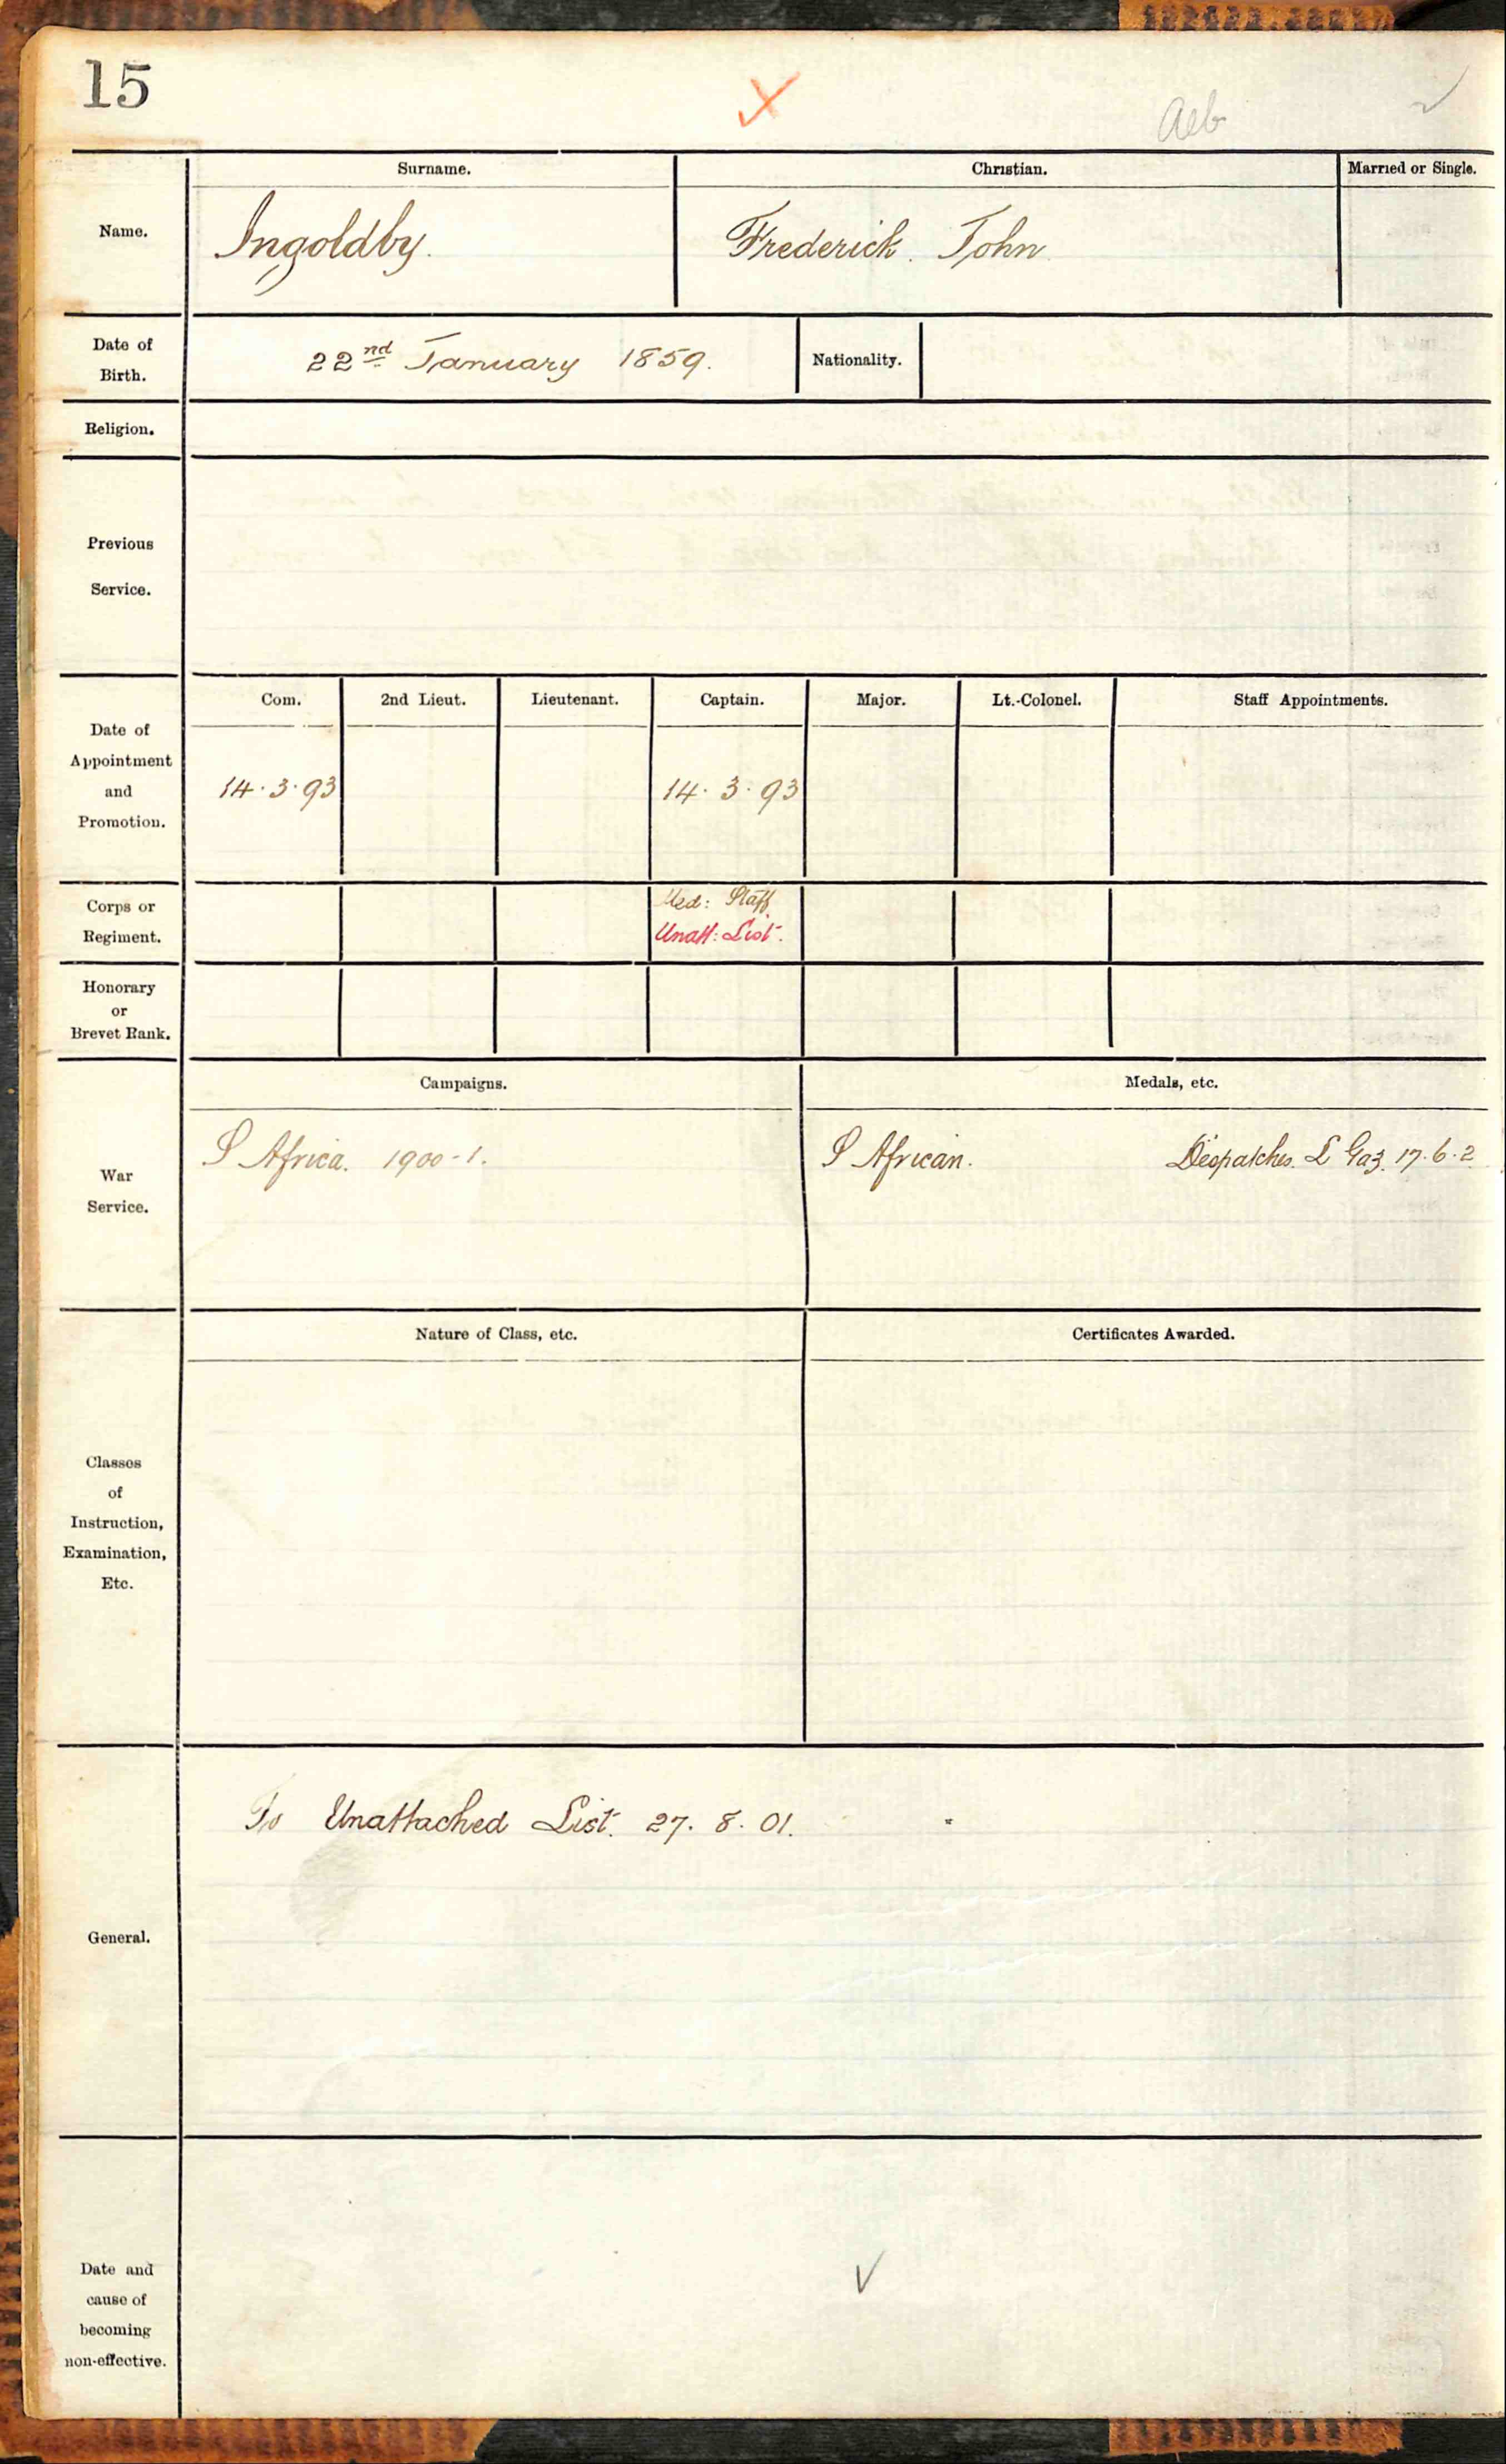 15
Aeb
Surname. Christian. Married or Single.
Name. Ingoldby. Frederick. John
Date of Birth. 22nd January 1859. Nationality.
Religion.
Previous Service.
Com. 2nd Lieut. Lieutenant. Captain. Major. Lt.-Colonel. Staff Appointments.
Date of Appointment and Promotion. 14.3.93 14.3.93
Corps or Regiment. Med: Staff
Unatt: List.
Honorary or Brevet Rank.
Campaigns. Medals, etc.
War Service. S Africa. 1900-1. S African. Despatches. L Gaz. 17.6.2
Nature of Class, etc. Certificates Awarded.
Classes of Instruction, Examination, Etc.
General. To Unattached List. 27.8.01.
Date and cause of becoming non-effective.